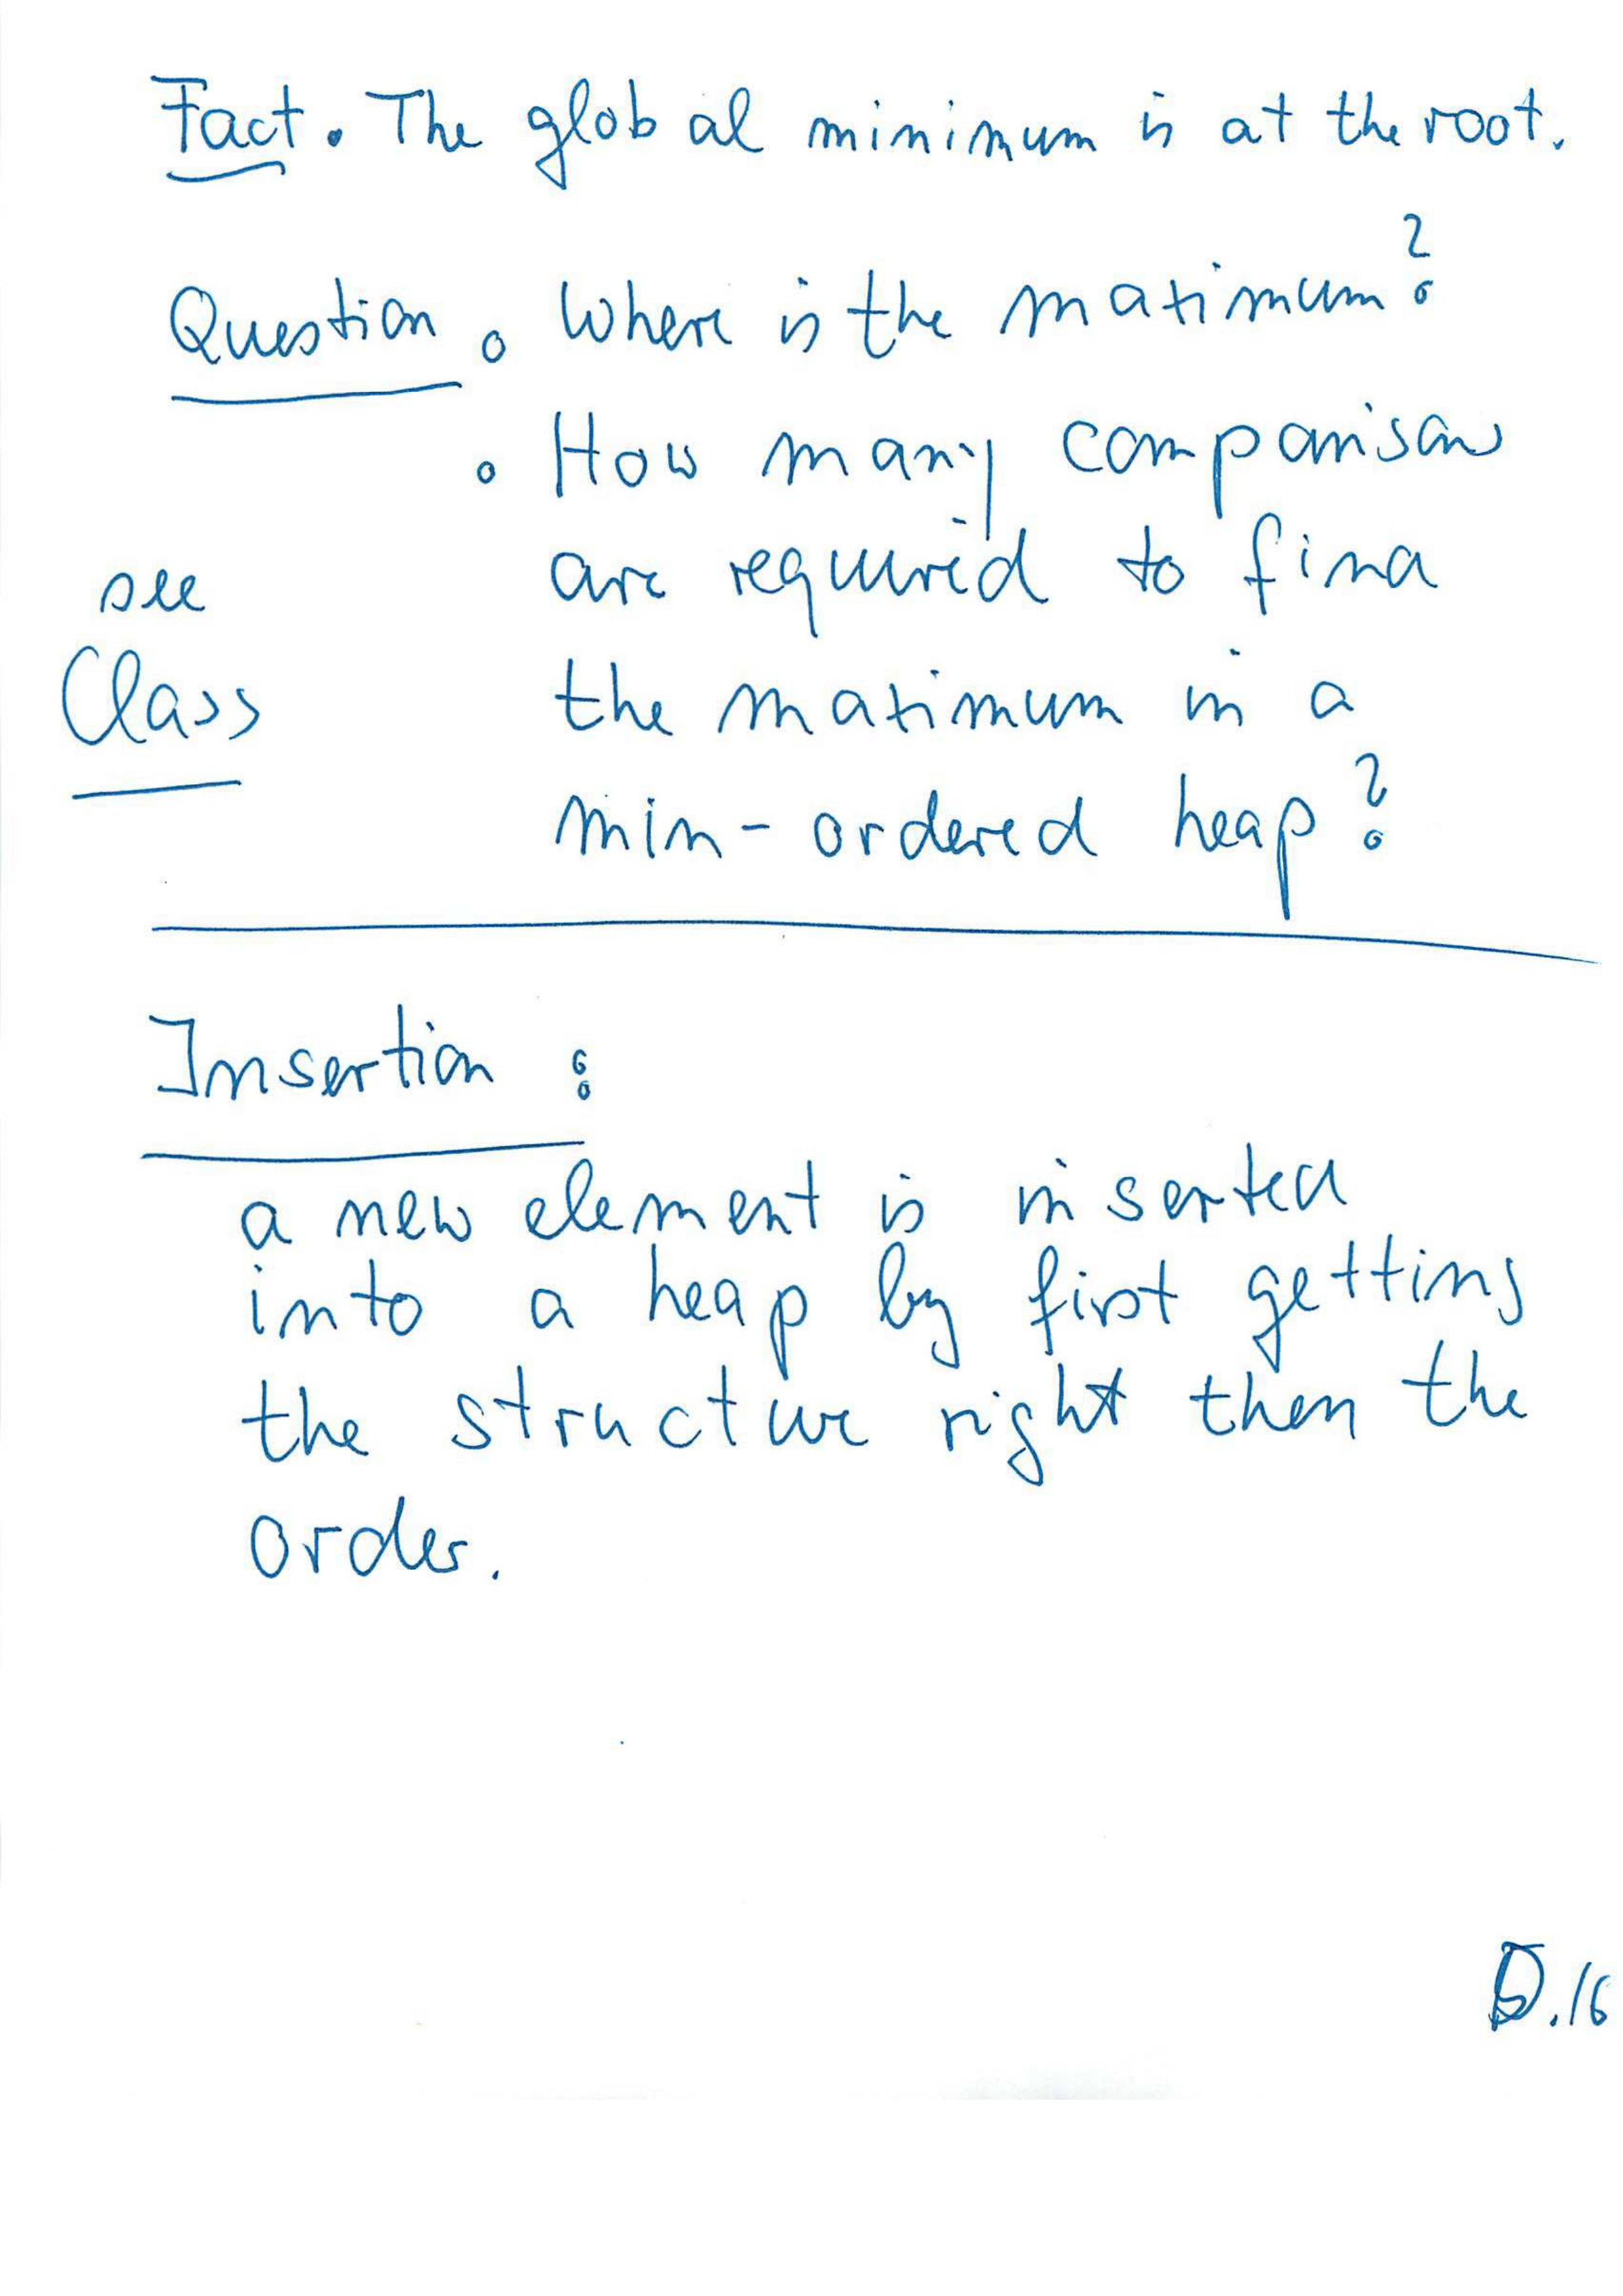 Fact. The global minimum is at the root.
Question. Where is the maximum?
. How many comparisons
are required to find
see
Class
the maximum in a
min-ordered heap?
Insertion:
a new element is inserted
into a heap by first getting
the structure right then the
order.
.16